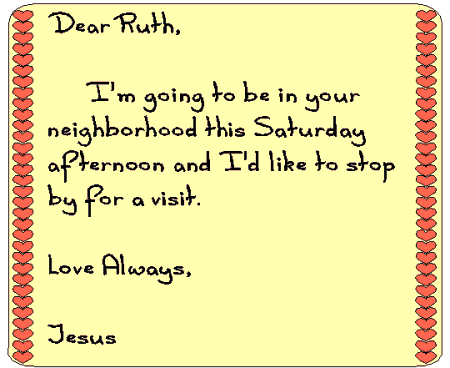 Dear Ruth,
I'm going to be in your
neighborhood this Saturday
afternoon and I'd like to stop
by for a visit.
Love Always,
Jesus